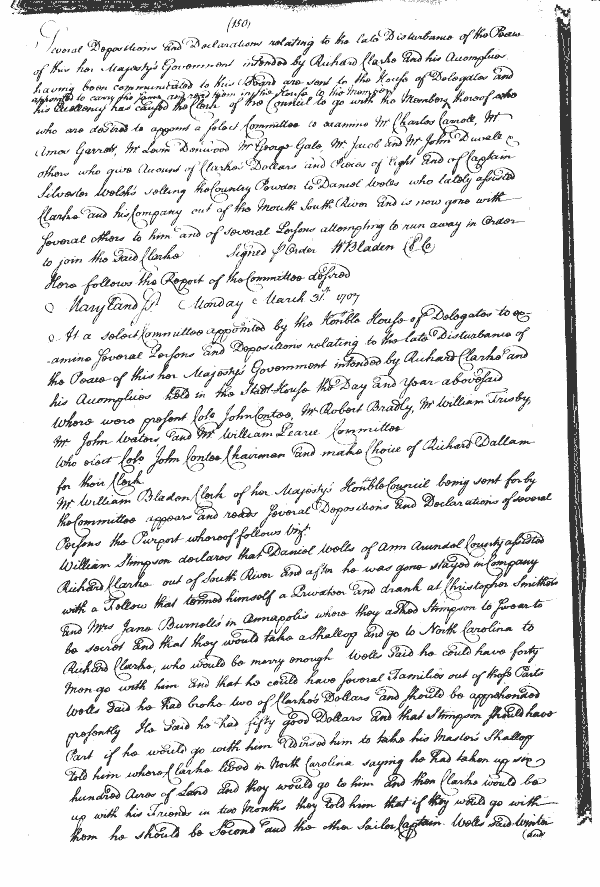 (150)
Several Depositions and Declarations relating to the late Disturbance of the Peace
of this her Majestys Government intended by Richard Clarke and his Accomplices
having been communicated to this Board are sent to the House of Delegates and
appointed to carry the same and read them in the House to the Members
his Excellency has caused the Clerk of the Council to go with the Members thereof who
who are desired to appoint a select Committee to examine Mr Charles Carroll, Mr
Amos Garrett, Mr Levin Denwood Mr George Gale, Mr Jacob and Mr John Duvall &
others who give Account of Clarkes Dollars and Pieces of Eight and of Captain
Silvester Welsh's selling the Country Powder to Daniel Wells who lately assisted
Clarke and his Company out of the Mouth South River and is now gone with
several others to him and of several Persons attempting to run away in Order
to join the said Clarke Signed p Order W Bladen Cl Co
Here follows the Report of the Committee desired
Maryland ss. Monday March 31st 1707
At a select Committee appointed by the Honble House of Delegates to ex-
-amine several Persons and Depositions relating to the late Disturbance of
the Peace of this her Majestys Government intended by Richard Clarke and
his Accomplices held in the Stadt House the Day and Year abovesaid
Where were present Colo John Contee, Mr Robert Bradly, Mr William Frisby,
Mr John Waters, and Mr William Pearce Committee
Who elect Colo John Contee Chairman and make Choice of Richard Dallam
for their Clerk
Mr William Bladen Clerk of her Majestys Honble Council being sent for by
the Committee appears and reads several Depositions and Declarations of several
Persons the Purport whereof follows Vizt.
William Stimpson declares that Daniel Wells of Ann Arundel County assisted
Richard Clarke out of South River and after he was gone stayed in Company
with a Fellow that termed himself a Privateer and drank at Christopher Smithers
and Mrs Jane Burnell's in Annapolis where they asked Stimpson to swear to
be secret and that they would take a Shallop and go to North Carolina to
Richard Clarke, who would be merry enough Wells said he could have forty
Men go with him and that he could have several Families out of those Parts
Wells said he had broke two of Clarke's Dollars and should be apprehended
presently He said he had fifty good Dollars and that Stimpson should have
Part if he would go with him Advised him to take his Master's Shallop
told him where Clarke lived in North Carolina saying he had taken up six
hundred Acres of Land and they would go to him and then Clarke would be
up with his Friends in two Months they told him that if they would go with
them he should be Second and the other Sailor Captain. Wells said Winter
and